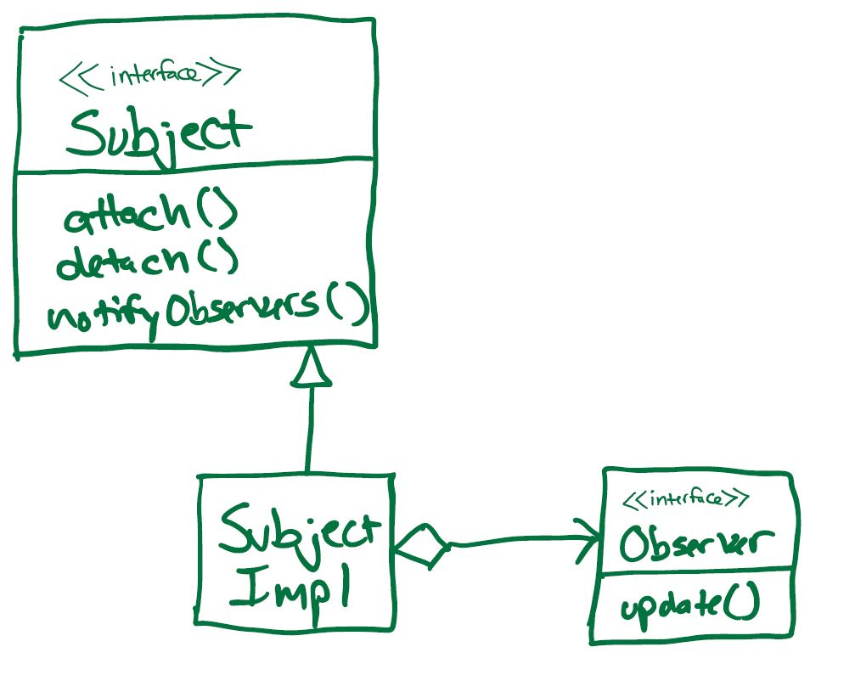 <<interface>>
Subject
attach()
detach()
notifyObservers()
Subject
Impl
<<interface>>
Observer
update()